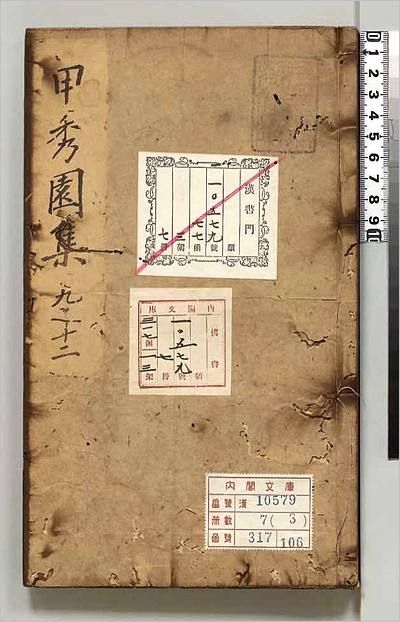 甲秀園集 九之十二
漢書門
類
一〇五七九號
七七函
二架
七冊
内閣文庫
漢書
一〇五七九號
七冊
三一七函
一三架
内閣文庫
番號 漢 10579
冊數 7(3)
函號 317 106
0
1
2
3
4
5
6
7
8
9
10